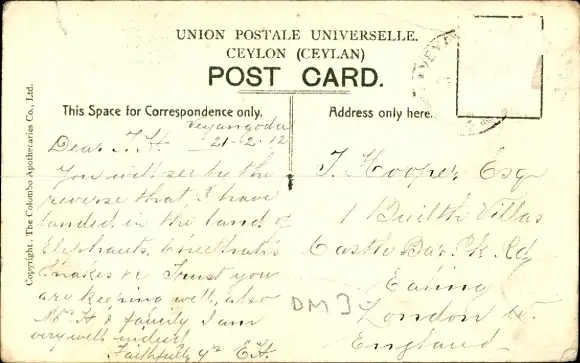 UNION POSTALE UNIVERSELLE.
CEYLON (CEYLAN)
POST CARD.
This Space for Correspondence only.
Address only here.
Copyright. The Colombo Apothecaries Co., Ltd.
Veyangoda
21-2-12
Dear T. H
You will see by the
reverse that I have
landed in the land of
Elephants,
Snakes &c Trust you
are keeping well, also
Mrs H & family I am
very well indeed
Faithfully yrs E.H.
T. Hooper Esq
1 Builth Villas
Castle Bar Pk Rd
Ealing
London W.
England
DM 3